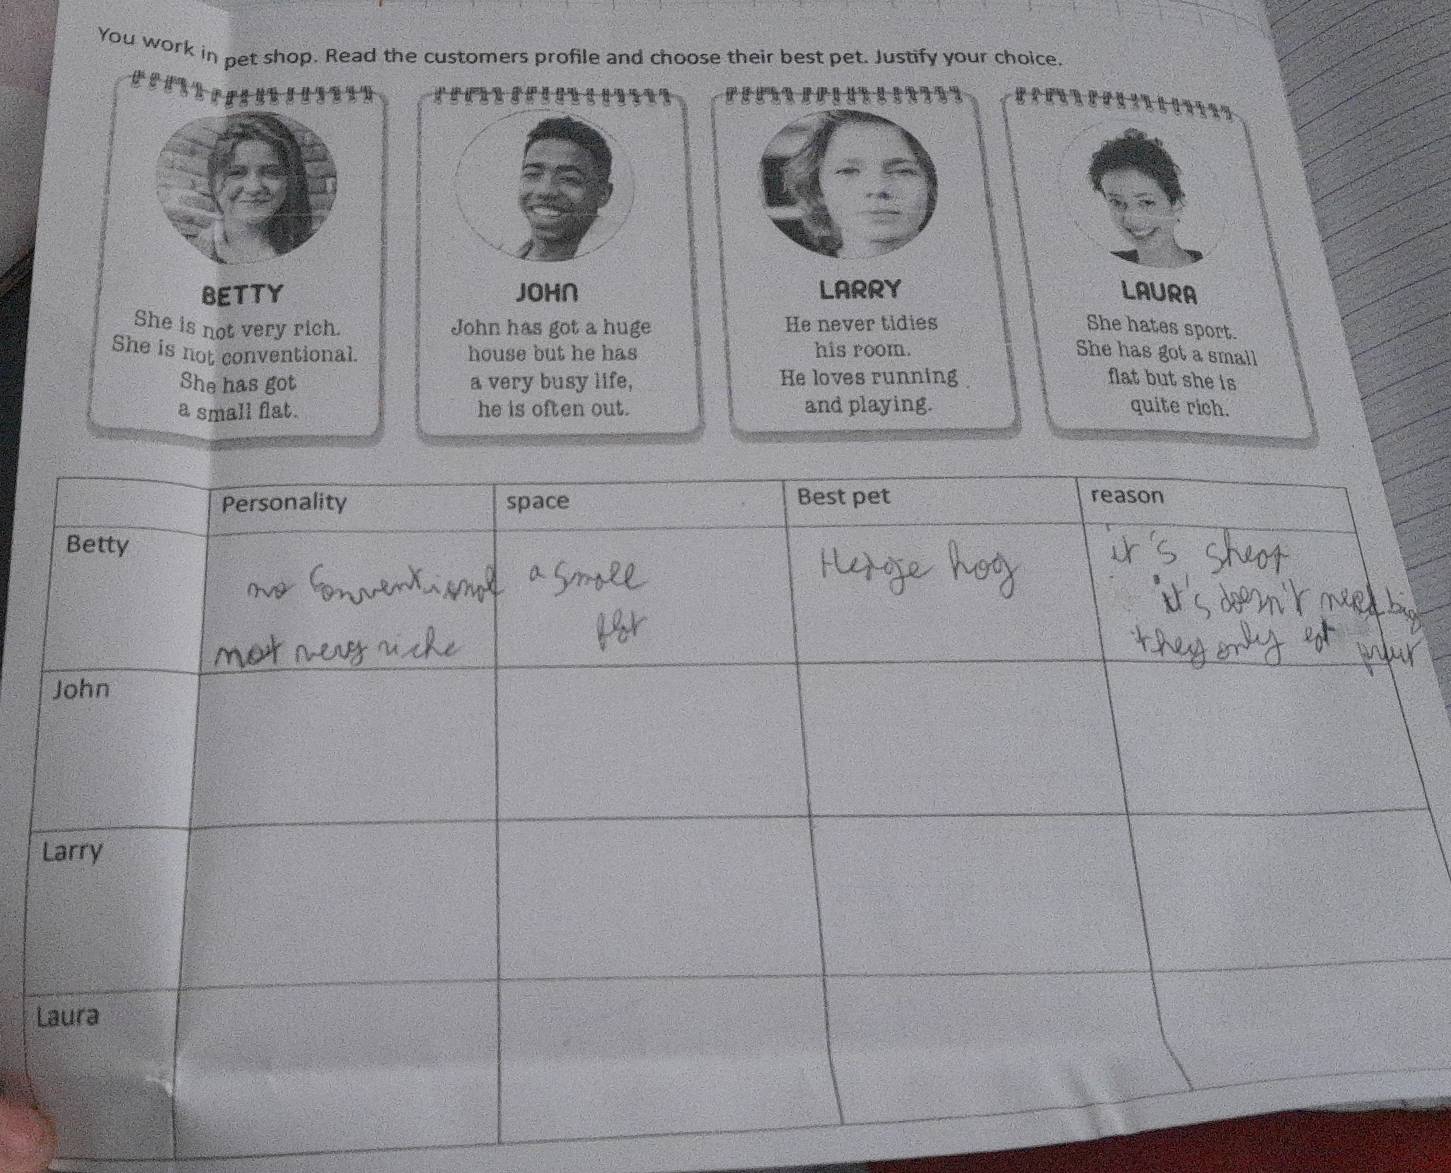 You work in pet shop. Read the customers profile and choose their best pet. Justify your choice.
BETTY
She is not very rich.
She is not conventional.
She has got
a small flat.
JOHN
John has got a huge
house but he has
a very busy life,
he is often out.
LARRY
He never tidies
his room.
He loves running
and playing.
LAURA
She hates sport.
She has got a small
flat but she is
quite rich.
Personality space Best pet reason
Betty
no conventional
not very riche
a small
flat
Hedge hog
it's cheap
it's doesn't need big
they only eat
John
Larry
Laura